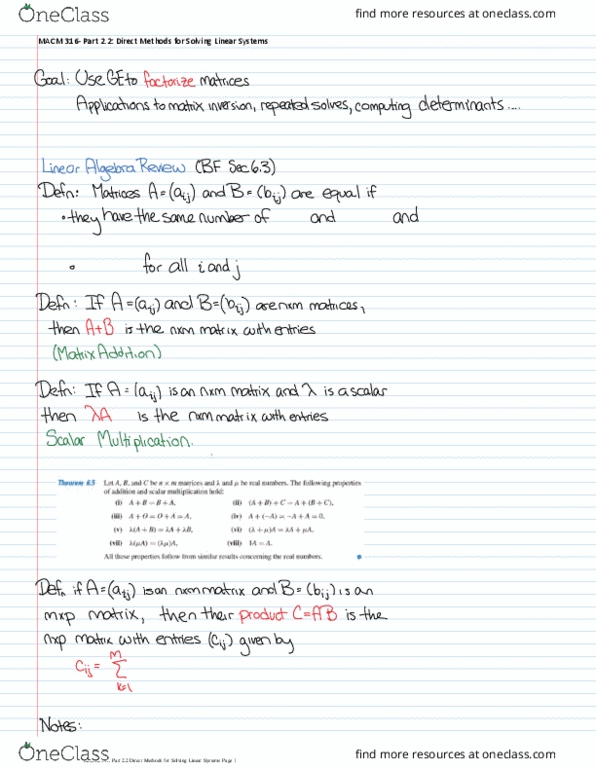 OneClass
find more resources at oneclass.com
MACM 316- Part 2.2: Direct Methods for Solving Linear Systems
Goal: Use GE to factorize matrices
Applications to matrix inversion, repeated solves, computing determinants....
Linear Algebra Review (BF Sec 6.3)
Defn: Matrices A=(aij) and B=(bij) are equal if
• they have the same number of and and
• for all i and j
Defn: If A=(aij) and B=(bij) are nxm matrices,
then A+B is the nxm matrix with entries
(Matrix Addition)
Defn: If A=(aij) is an nxm matrix and λ is a scalar
then λA is the nxm matrix with entries
Scalar Multiplication.
Theorem 6.5 Let A, B, and C be n × m matrices and λ and μ be real numbers. The following properties
of addition and scalar multiplication hold:
(i) A + B = B + A, (ii) (A + B) + C = A + (B + C),
(iii) A + O = O + A = A, (iv) A + (−A) = −A + A = 0,
(v) λ(A + B) = λA + λB, (vi) (λ + μ)A = λA + μA,
(vii) λ(μA) = (λμ)A, (viii) 1A = A.
All these properties follow from similar results concerning the real numbers.
Def. if A=(aij) is an nxm matrix and B=(bij) is an
mxp matrix, then their product C=AB is the
nxp matrix with entries (cij) given by
cij = Σ
m
k=1
Notes:
OneClass
Part 2.2 Direct Methods for Solving Linear Systems Page 1
find more resources at oneclass.com